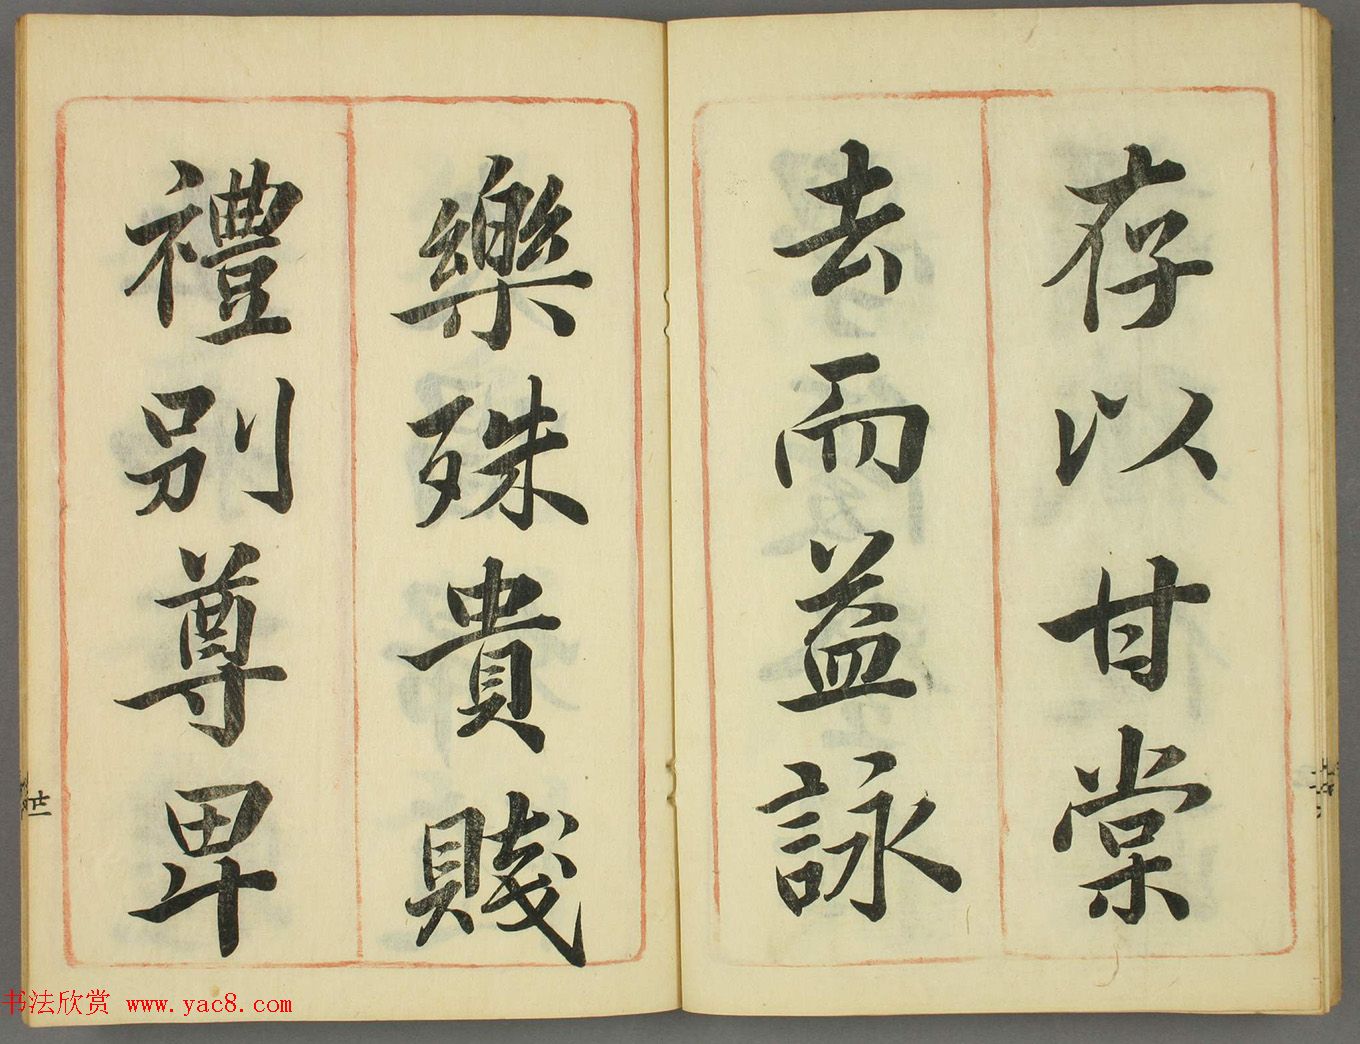 存以甘棠
去而益詠
樂殊貴賤
禮別尊卑
廿一
书法欣赏 www.yac8.com